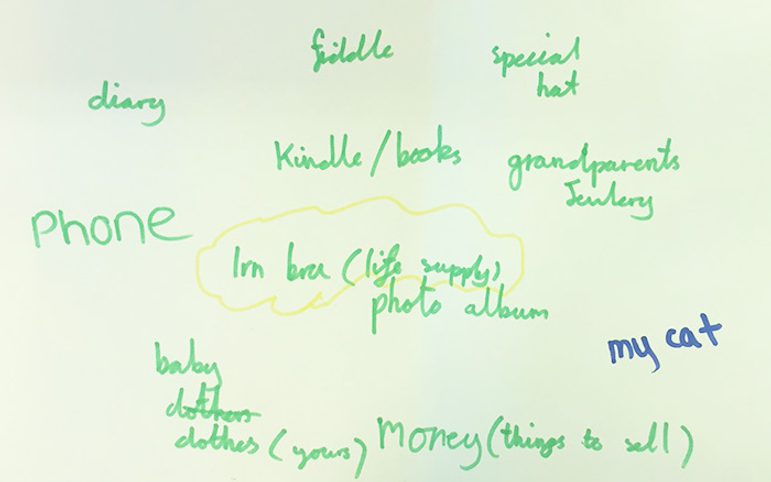 fiddle
special
hat
diary
Kindle/books
grandparents
Jewlery
Phone
Irn bru (life supply)
photo album
my cat
baby
clothes (yours)
Money (things to sell)